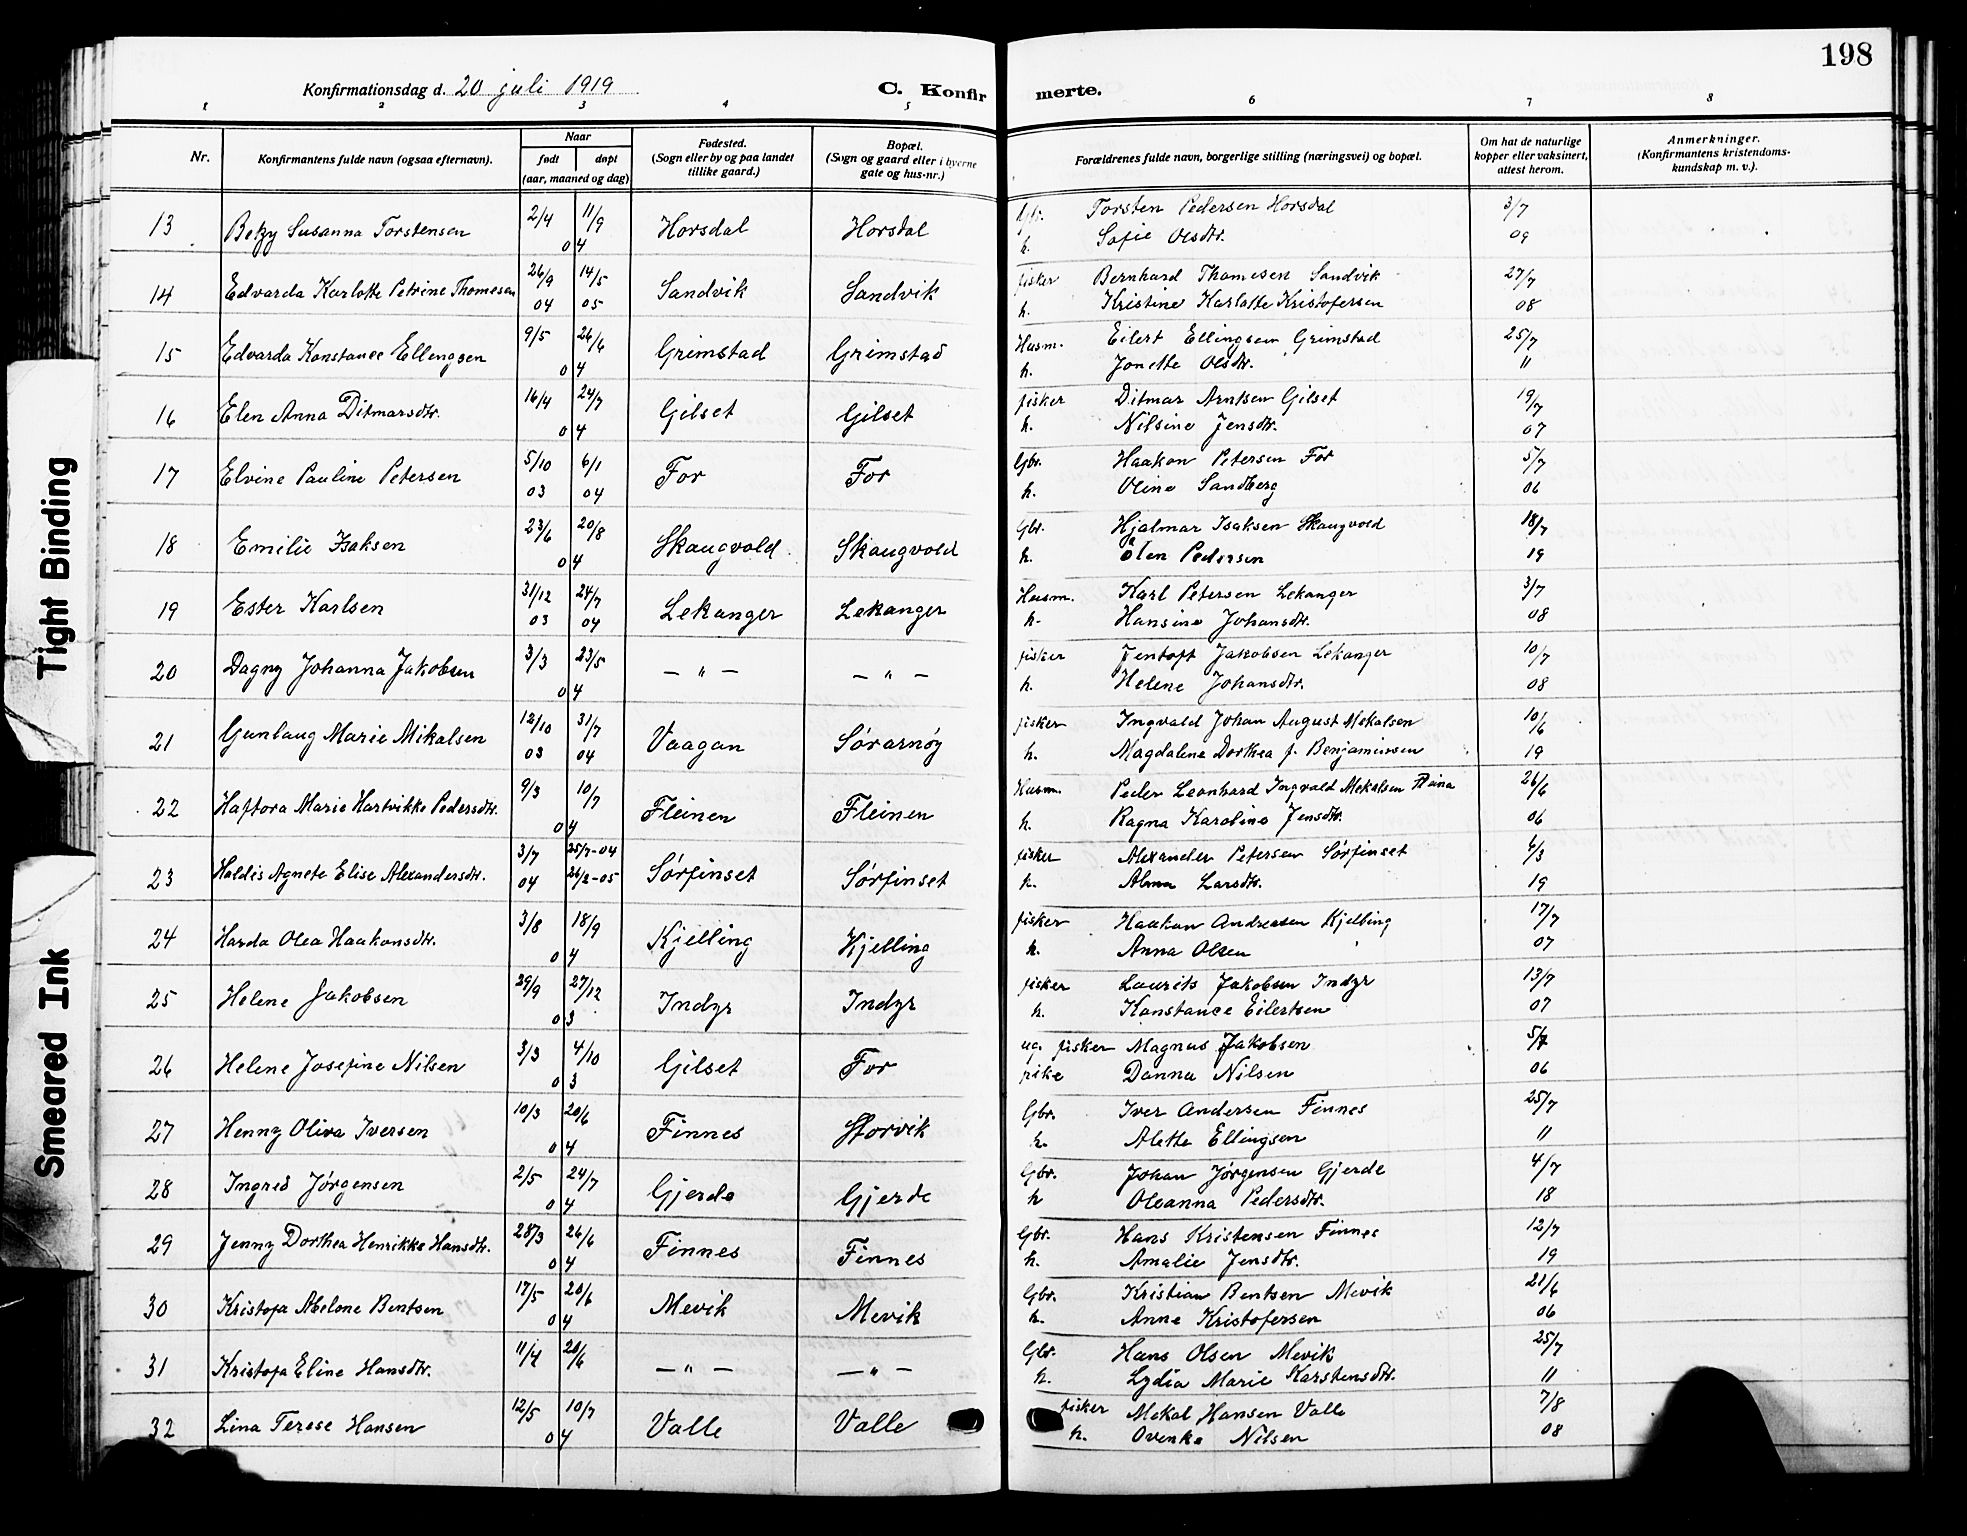 198
Konfirmationsdag d. 20 juli 1919
C. Konfirmerte.
1 2 3 4 5 6 7 8
Nr.
Konfirmantens fulde navn (ogsaa efternavn).
Naar
født døpt
(aar, maaned og dag)
Fødested.
(Sogn eller by og paa landet
tillike gaard.)
Bopæl.
(Sogn og gaard eller i byerne
gate og hus-nr.)
Forældrenes fulde navn, borgerlige stilling (næringsvei) og bopæl.
Om hat de naturlige
kopper eller vaksinert,
attest herom.
Anmerkninger.
(Konfirmantens kristendoms-
kundskap m. v.).
13 Betzy Susanna Torstensen 2/4 11/9 04 Horsdal Horsdal Gbr. Torsten Pedersen Horsdal 3/7
h. Sofie Olsdtr. 09
14 Edvarda Karlotte Petrine Thomesen 26/9 04 14/5 05 Sandvik Sandvik fisker Bernhard Thomesen Sandvik 27/7
h. Kristine Karlotte Kristofersen 08
15 Edvarda Konstance Ellengsen 9/5 26/6 04 Grimstad Grimstad Husm. Eilert Ellingsen Grimstad 25/7
h. Jonette Olsdtr. 11
16 Elen Anna Ditmarsdtr. 16/4 24/7 04 Gilset Gilset fisker Ditmar Arntsen Gilset 19/7
h. Nilsine Jensdtr. 07
17 Elvine Pauline Petersen 5/10 03 6/1 04 For For Gbr. Haakon Petersen For 5/7
h. Oline Sandberg 06
18 Emilie Isaksen 23/6 20/8 04 Skaugvold Skaugvold Gbr. Hjalmar Isaksen Skaugvold 18/7
h. Elen Pedersen 19
19 Ester Karlsen 31/12 03 24/7 04 Lekanger Lekanger Husm. Karl Petersen Lekanger 3/7
h. Hansine Johansdtr. 08
20 Dagny Johanna Jakobsen 3/3 23/5 04 — " — — " — fisker Jentoft Jakobsen Lekanger 10/7
h. Helene Johansdtr. 08
21 Gunlaug Marie Mikalsen 12/10 03 31/7 04 Vaagan Sørarnøy fisker Ingvald Johan August Mekalsen 10/6
h. Magdalene Dorthea f. Benjaminsen 19
22 Haftora Marie Hartvikke Pedersdtr. 9/3 10/7 04 Fleinen Fleinen Husm. Peder Leonhard Ingvald Mekalsen 26/6
h. Ragna Karoline Jensdtr. 06
23 Haldis Agnete Elise Alexandersdtr. 3/7 04 25/7-04 26/2-05 Sørfinset Sørfinset fisker Alexander Petersen Sørfinset 6/3
h. Alma Larsdtr. 19
24 Harda Olea Haakonsdtr. 3/8 18/9 04 Kjelling Kjelling fisker Haakon Andreasen Kjelling 17/7
h. Anna Olsen 07
25 Helene Jakobsen 29/9 27/12 03 Indyr Indyr fisker Laurits Jakobsen Indyr 13/7
h. Konstance Eilertsen 07
26 Helene Josefine Nilsen 3/3 4/10 03 Gilset For ug. fisker Magnus Jakobsen 5/7
pike Danna Nilsen 06
27 Henny Oliva Iversen 10/3 20/6 04 Finnes Storvik Gbr. Iver Andersen Finnes 25/7
h. Alette Ellingsen 11
28 Ingred Jørgensen 2/5 24/7 04 Gjerde Gjerde Gbr. Johan Jørgensen Gjerde 4/7
h Oleanna Pedersdtr. 18
29 Jenny Dorthea Henrikke Hansdtr. 28/3 26/6 04 Finnes Finnes Gbr. Hans Kristensen Finnes 12/7
h. Amalie Jensdtr. 19
30 Kristofa Abelone Bentsen 17/5 20/6 04 Mevik Mevik Gbr. Kristian Bentsen Mevik 21/6
h. Anne Kristofersen 06
31 Kristofa Eline Hansdtr. 11/4 20/6 — " — — " — Gbr. Hans Olsen Mevik 25/7
h. Lydia Marie Karstensdtr. 11
32 Lina Terese Hansen 12/5 10/7 04 Valle Valle fisker Mekal Hansen Valle 7/8
h. Ovenka Nilsen 08
Tight Binding
Smeared Ink